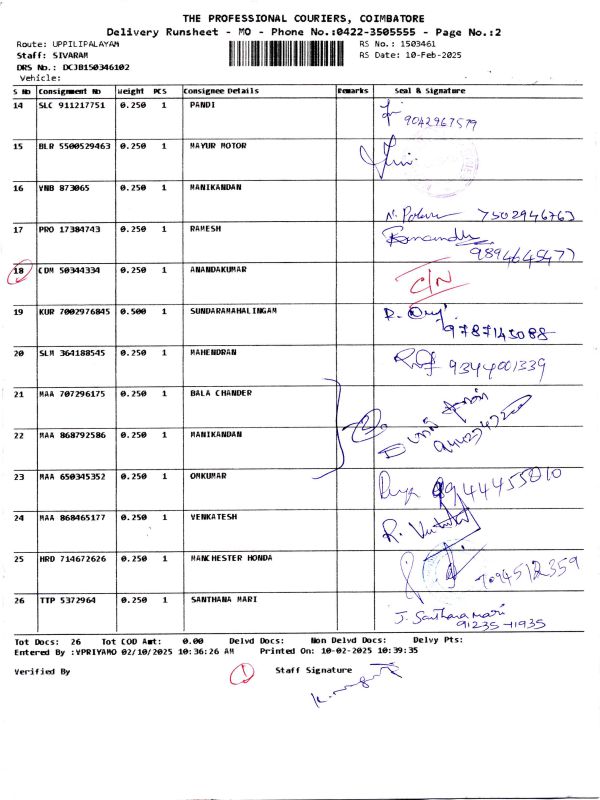 THE PROFESSIONAL COURIERS, COIMBATORE
Delivery Runsheet - MO - Phone No.:0422-3505555 - Page No.:2
Route: UPPILIPALAYAM RS No.: 1503461
Staff: SIVARAM RS Date: 10-Feb-2025
DRS No.: DCJB150346102
Vehicle:
S No Consignment No Weight PCS Consignee Details Remarks Seal & Signature
14 SLC 911217751 0.250 1 PANDI
9042967579
15 BLR 5500529463 0.250 1 MAYUR MOTOR
16 VNB 873065 0.250 1 MANIKANDAN
7502946763
17 PRO 17384743 0.250 1 RAMESH
9894645477
18 CDM 50344334 0.250 1 ANANDAKUMAR C/N
19 KUR 7002976845 0.500 1 SUNDARAMAHALINGAM
9787143088
20 SLM 364188545 0.250 1 MAHENDRAN 9344001339
21 MAA 707296175 0.250 1 BALA CHANDER
22 MAA 868792586 0.250 1 MANIKANDAN
23 MAA 650345352 0.250 1 OMKUMAR
24 MAA 868465177 0.250 1 VENKATESH
25 HRD 714672626 0.250 1 MANCHESTER HONDA
7094512359
26 TTP 5372964 0.250 1 SANTHANA MARI J. Santhana mari
91235-11935
Tot Docs: 26 Tot COD Amt: 0.00 Delvd Docs: Non Delvd Docs: Delvy Pts:
Entered By :VPRIYAMO 02/10/2025 10:36:26 AM Printed On: 10-02-2025 10:39:35
Verified By 1 Staff Signature